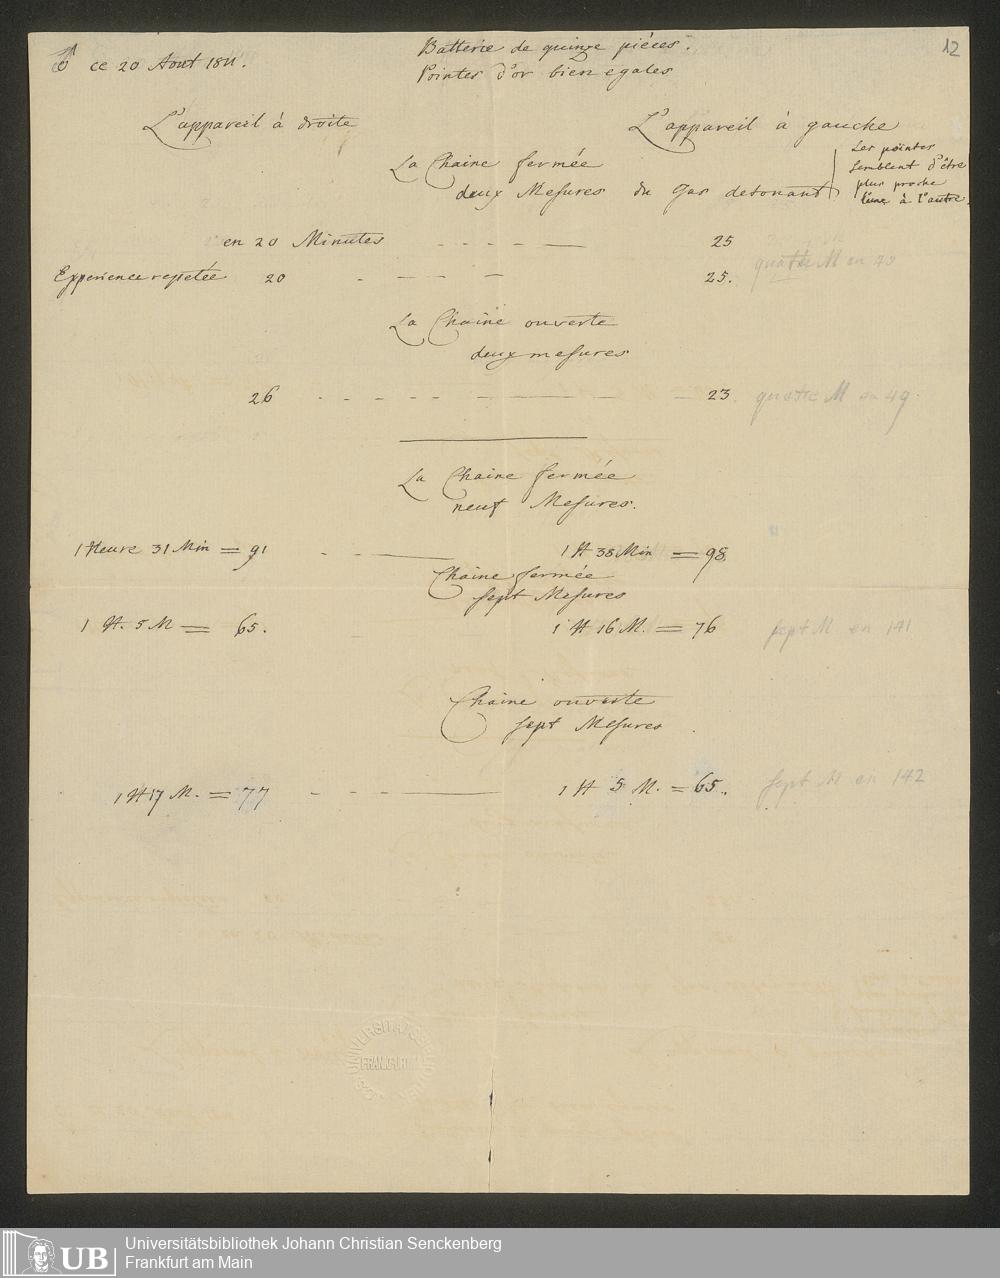 ♂ ce 20 Aout 1811.
Batterie de quinze piéces.
Pointes d'or bien egales
12
L'appareil à droite
L'appareil à gauche
La Chaine fermée
deux Mesures du Gas detonant
Les pointes
semblent d'être
plus proche
l'une à l'autre.
en 20 Minutes - - - - - 25
quatre M en
Experience repetée 20 - - - - 25.
La Chaine ouverte
deux mesures
26 - - - - - - - - 23.
quatre M en 49.
La Chaine fermée
neuf Mesures.
1 Heure 31 Min = 91 - - - 1 H 38 Min = 98.
Chaine fermée
sept Mesures
1 H. 5 M = 65. 1 H 16 M. = 76
sept M en 141
Chaine ouverte
sept Mesures
1 H 17 M. = 77 - - - - 1 H 5 M. = 65.
sept M en 142
UNIVERSITÄTSBIBLIOTHEK
FRANKFURT
UB
Universitätsbibliothek Johann Christian Senckenberg
Frankfurt am Main